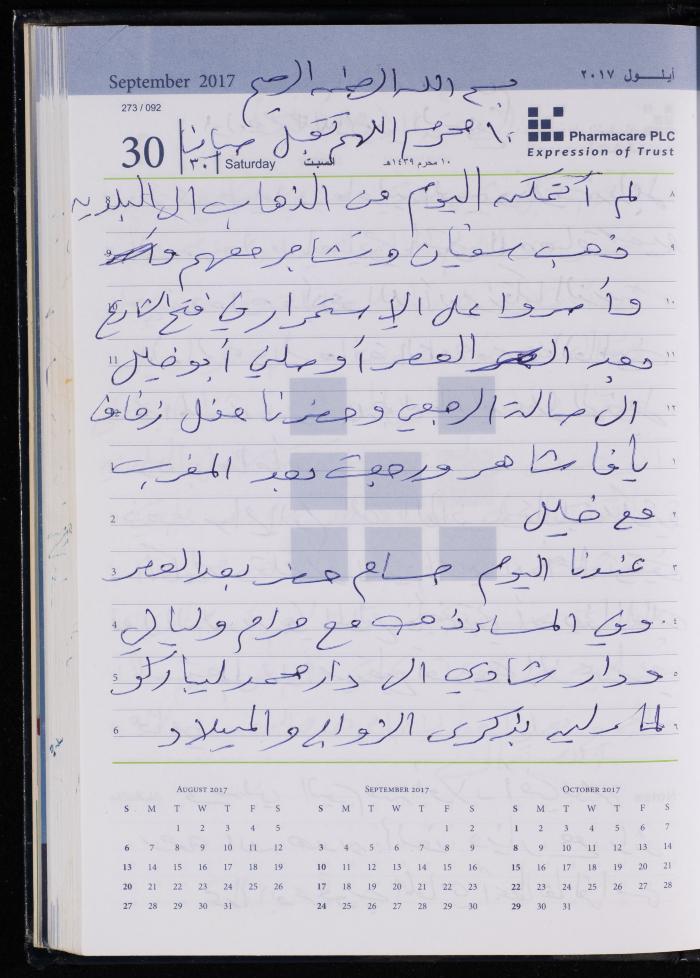 September 2017
أيلول ٢٠١٧
بسم الله الرحمن الرحيم
273 / 092
30
٣٠
Saturday
السبت
١٠ محرم ١٤٣٩هـ
Pharmacare PLC
Expression of Trust
١٠ محرم اللهم تقبل صيامنا
لم أتمكن اليوم من الذهاب الى البلدية
ذهب سفيان وتشاجر معهم
وأصروا على الإستمرار في فتح الشارع
بعد العصر أوصلني أبو خليل
الى صالة وحضرنا حفل زفاف
يافا شاهر ورجعت بعد المغرب
مع خليل
عندنا اليوم حسام حضر بعد العصر
وفي المساء ذهب مع مرام وليالي
ودار شادي الى دار محمد ليباركو
بذكرى الزواج والميلاد
٨
9 ٩
10 ١٠
11 ١١
12 ١٢
1 ١
2 ٢
3 ٣
4 ٤
5 ٥
6 ٦
August 2017
S M T W T F S
1 2 3 4 5
6 7 8 9 10 11 12
13 14 15 16 17 18 19
20 21 22 23 24 25 26
27 28 29 30 31
September 2017
S M T W T F S
1 2
3 4 5 6 7 8 9
10 11 12 13 14 15 16
17 18 19 20 21 22 23
24 25 26 27 28 29 30
October 2017
S M T W T F S
1 2 3 4 5 6 7
8 9 10 11 12 13 14
15 16 17 18 19 20 21
22 23 24 25 26 27 28
29 30 31